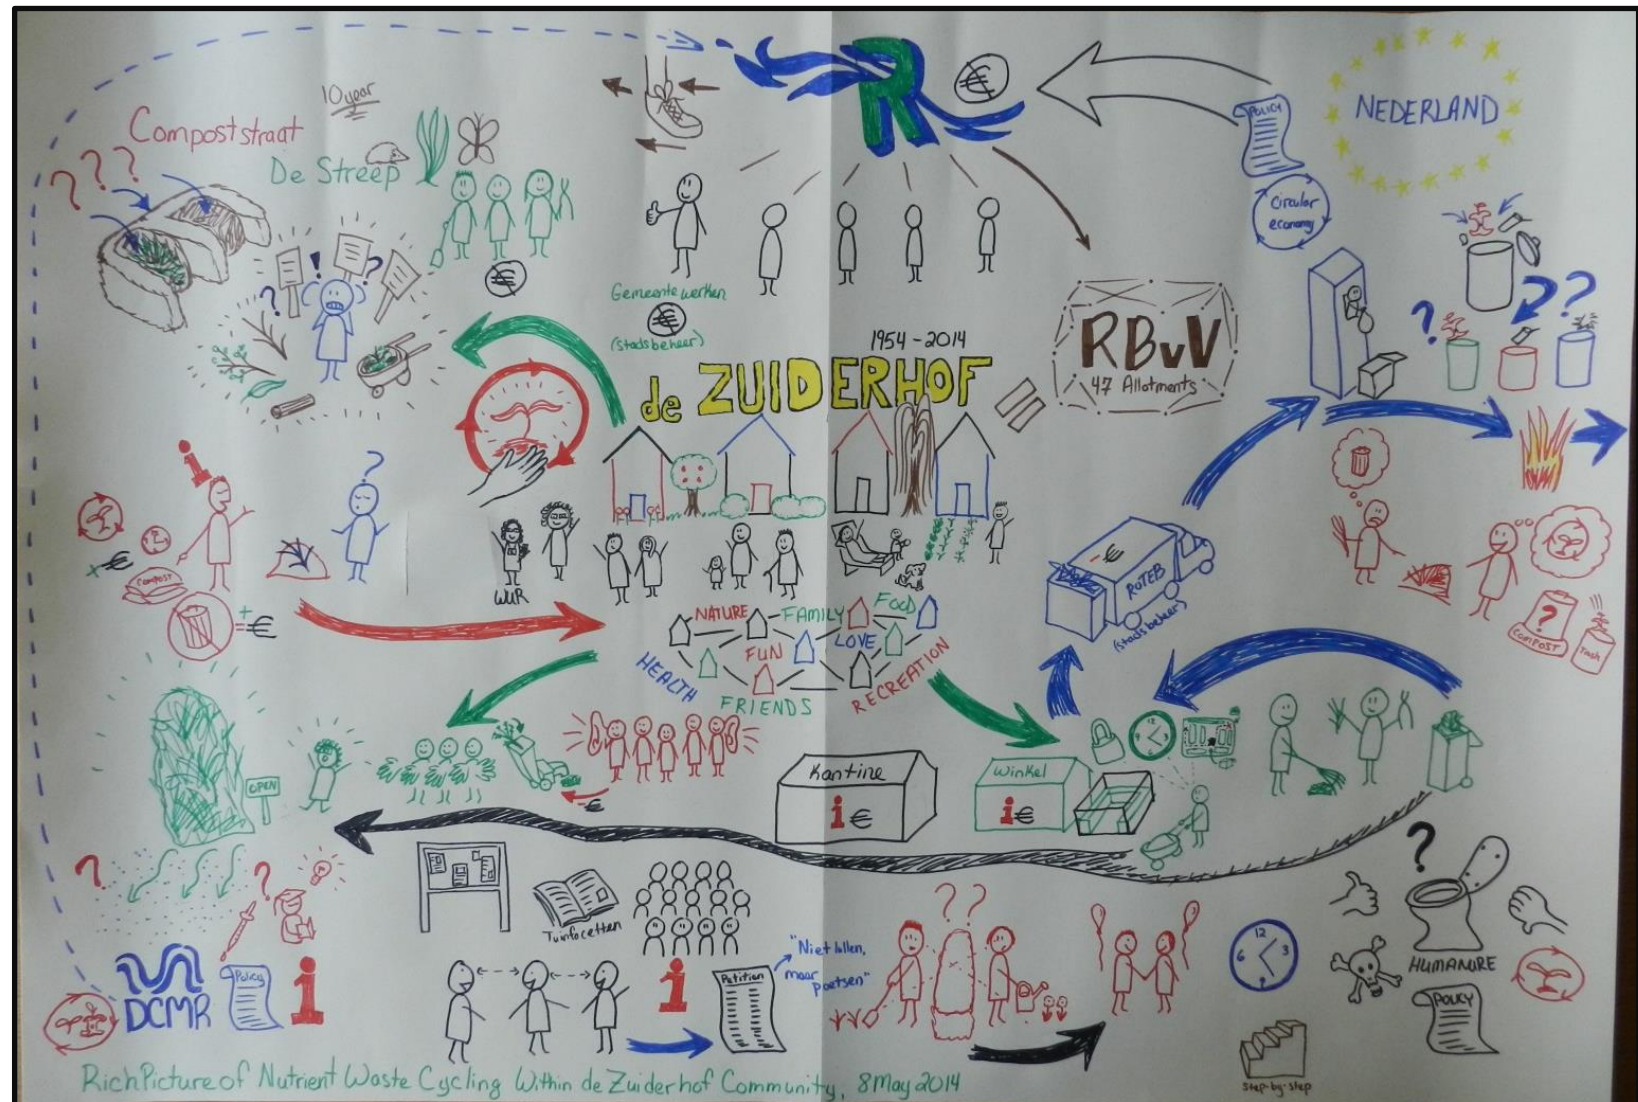 10 year
Compoststraat
De Streep
R
€
POLICY
NEDERLAND
Circular
economy
Gemeentewerken
€
(stadsbeheer)
€
1954 - 2014
de ZUIDERHOF
RBvV
47 Allotments
i
+€
COMPOST
+
=€
WUR
NATURE
FAMILY
FOOD
HEALTH
FUN
LOVE
FRIENDS
RECREATION
-€
ROTEB
(stadsbeheer)
?
COMPOST
Trash
OPEN
-€
Kantine
i €
Winkel
i €
12
3
6
Tuinfacetten
DCMR
Policy
i
i
Petition
"Niet lullen,
maar
poetsen"
12
3
6
HUMANURE
POLICY
step-by-step
Rich Picture of Nutrient Waste Cycling Within de Zuiderhof Community, 8 May 2014